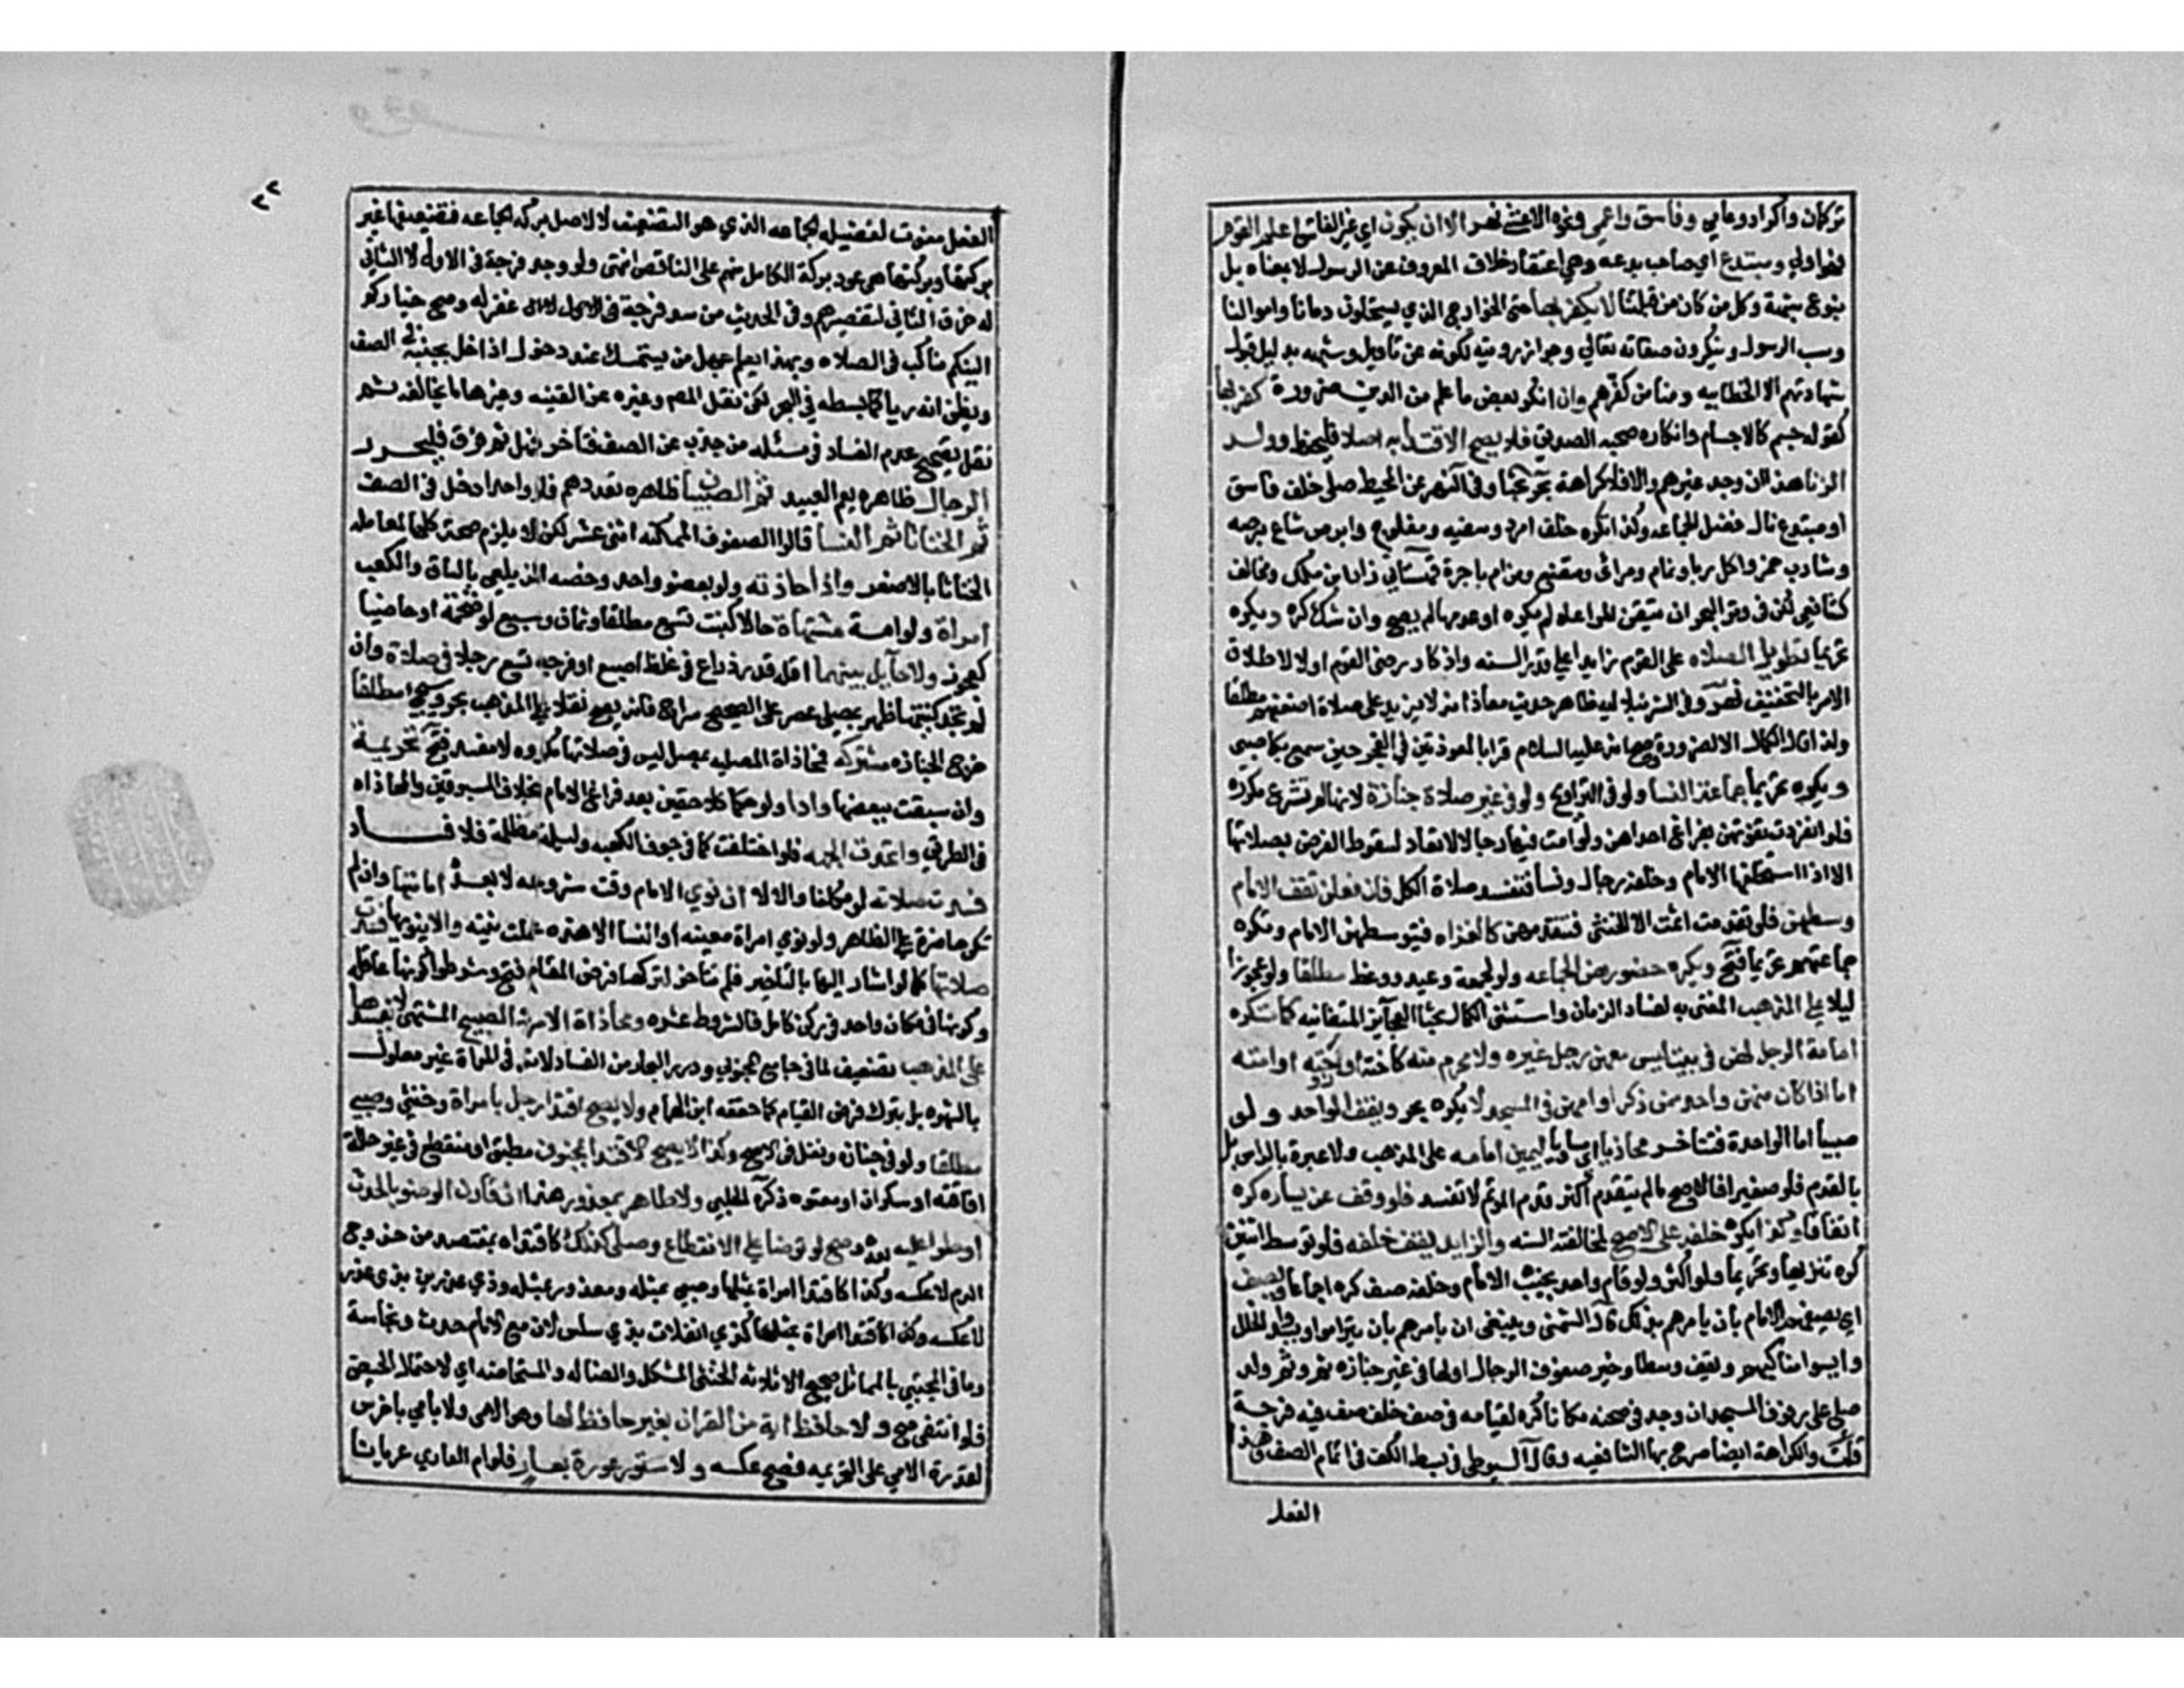 تركمان واكراد وعامي وفاسق واعمى ونحوه الاعشى نهر الا ان يكون اي غير الفاسق اعلم القوم
فهو اولى ومبتدع اي صاحب بدعه وهي اعتقاد خلاف المعروف عن الرسول لا بمعانده بل
بنوع شبهة وكل من كان من قبلتنا لا يكفر بها حتى الخوارج الذي يستحلون دمانا واموالنا
وسب الرسول وينكرون صفاته تعالي وجواز رويته لكونه عن تاويل وشبهه بدليل قبول
شهادتهم الا الخطابيه ومنا من كفرهم وان انكر بعض ما علم من الدين ضرورة كفر بها
كقوله جسم كالاجسام وانكاره صحبه الصديق فلا يصح الاقتدا به اصلا فليحفظ وولد
الزنا هذا ان وجد غيرهم والا فلا كراهة بحر بحثا وفي النهر عن المحيط صلى خلف فاسق
او مبتدع نال فضل الجماعه وكذا تكره خلف امرد وسفيه ومفلوج وابرص شاع برصه
وشارب خمر واكل ربا ونمام ومرائي ومتصنع ومن ام باجرة قهستاني زاد ابن ملك ومخالف
كشافعي لكن في وتر البحر ان تيقن المراعاه لم يكره او عدمها لم يصح وان شك كره ويكره
تحريما تطويل الصلاه على القوم زايدا على قدر السنه واذكار رضي القوم اولا لاطلاق
الامر بالتخفيف نهر وفي الشرنبلاليه ظاهر حديث معاذ انه لا يزيد على صلاة اضعفهم مطلقا
ولذا قال الكمال الا لضرورة وصح انه عليه السلام قرا بالمعوذتين في الفجر حين سمع بكا صبي
ويكره تحريما جماعة النسا ولو في التراويح ولو في غير صلاة جنازة لانها لم تشرع مكررة
فلو انفردت تفوتهن بفراغ احداهن ولو امت فيها رجالا لا تعاد لسقوط الفرض بصلاتها
الا اذا استخلفها الامام وخلفه رجال ونسا فتفسد صلاة الكل فان فعلن تقف الامام
وسطهن فلو تقدمت اثمت الا الخنثى فتتقدمهن كالعراه فيتوسطهن الامام وتكره
جماعتهم تحريما فتح ويكره حضورهن الجماعه ولو لجمعة وعيد ووعظ مطلقا ولو عجوزا
ليلا على المذهب المفتى به لفساد الزمان واستثنى الكمال بحثا العجايز المتفانيه كما تكره
امامة الرجل لهن في بيت ليس معهن رجل غيره ولا محرم منه كاخته او زوجته او امته
اما اذا كان معهن واحد ممن ذكر او امهن في المسجد لا يكره بحر ويقف الواحد ولو
صبيا اما الواحدة فتتاخر محاذيا اي مساويا ليمين امامه على المذهب ولا عبرة بالراس بل
بالقدم فلو صغيرا فالاصح ما لم يتقدم اكثر قدم الموتم لا تفسد فلو وقف عن يساره كره
اتفاقا وكذا يكره خلفه على الاصح لمخالفة السنه والزايد يقف خلفه فلو توسط اثنين
كره تنزيها وتحريما ولو اكثر ولو قام واحد بجنب الامام وخلفه صف كره اجماعا ويصف
اي يصفهم الامام بان يامرهم بذلك قال الشمني وينبغي ان يامرهم بان يتراصوا ويسدوا الخلل
ويسووا مناكبهم ويقف وسطا وخير صفوف الرجال اولها في غير جنازه ثم وثم ولو
صلى على رفوف المسجد ان وجد في صحنه مكانا كره لقيامه في صف خلف صف فيه فرجة
قلت وبالكراهة ايضا صرح بها الشافعيه وقال السيوطي في بسط الكف في اتمام الصف وهذا
الفعل
٢٢
الفعل مفوت لفضيله الجماعه الذي هو التضعيف لا لاصل بركة الجماعه فتضعيفها غير
بركتها وبركتها هي عود بركة الكامل منهم على الناقص انتهى ولو وجد فرجة في الاول لا الثاني
له خرق الثاني لتقصيرهم وفي الحديث من سد فرجة غفر له وصح خياركم
الينكم مناكب في الصلاه وبهذا يعلم جهل من يستمسك عند دخول داخل بجنبه في الصف
ويظن انه ريا كما بسطه في البحر لكن نقل المص وغيره عن القنيه وغيرها ما يخالفه ثم
نقل تصحيح عدم الفساد في مسئله من جذب عن الصف فتاخر فهل ثم فرق فليحرر
الرجال ظاهره يعم العبيد ثم الصبيان ظاهره تعددهم فلو واحدا دخل في الصف
ثم الخناثا ثم النسا قالوا الصفوف الممكنه اثنى عشر لكن لا يلزم صحة كلها لمعامله
الخناثا بالاضر واذا حاذته ولو بعضو واحد وخصه الزيلعي بالساق والكعب
امراة ولو امة مشتهاة حالا كبنت تسع مطلقا وثمان وسبع لو ضخمة او ماضيا
كعجوز ولا حايل بينهما اقله قدر ذراع في غلظ اصبع او فرجه تسع رجلا في صلاة وان
لم تتحد كنيتها ظهر بمصلي عصر على الصحيح سراج فانه يصح نفلا على المذهب بحر وسيجي مطلقا
خرج الجنازه مشتركه فمحاذاة المصليه لمصل ليس في صلاتها مكروه لا مفسد فتح تحريمة
وان سبقت ببعضها وادا ولو حكما كلاحقين بعد فراغ الامام بخلاف المسبوقين والمحاذاه
في الطريق واتحدت الجهه فلو اختلفت كما في جوف الكعبه وليلة مظلمة فلا فساد
فسدت صلاته لو مكلفا والا لا ان نوى الامام وقت شروعه لا بعده امامتها وان لم
تكن حاضرة على الظاهر ولو نوى امراة معينه او النسا الا هذه عملت نيته والا ينويها فسدت
صلاتها كما لو اشار اليها بالتاخير فلم تتاخر لتركها فرض المقام فتح وشرطوا كونها عاقلة
وكونهما في مكان واحد في ركن كامل فالشروط عشره ومحاذاة الامرد الصبيح المشتهى لا يفسدها
على المذهب تضعيف لما في جامع المحبوبي ودرر البحار من الفساد لانه في المراة غير معلول
بالشهوه بل بترك فرض القيام كما حققه ابن الهمام ولا يصح اقتدا رجل بامراة وخنثى وصبي
مطلقا ولو في جنازه ونفل في الاصح وكذا لا يصح الاقتدا بمجنون مطبق او منقطع في غير حالة
افاقته او سكران او معتوه ذكره الحلبي ولا طاهر بمعذور هذا ان قارن الوضو الحدث
او طرا عليه بعده وصح لو توضا على الانقطاع وصلى كذلك كاقتداه بمفتصد من خروج
الدم لا عكسه وكذا كاقتدا امراة بمثلها وصبي بمثله ومعذور بمثله وذي عذرين بذي عذر
لا عكسه وكذا كاقتدا امراة بمثلها كذي انفلات بذي سلس لان مع الامام حدث ونجاسة
وما في المجتبي بالمماثل صحيح الا ثلاثه الخنثى المشكل والضاله والمستحاضه اي لاحتمال الحيض
فلو انتفى صح ولا حافظ اية من القران بغير حافظ لها وهو الامي ولا امي باخرس
لقدرة الامي على التحريمه فصح عكسه ولا مستور عورة بعار فلو ام العاري عريانا